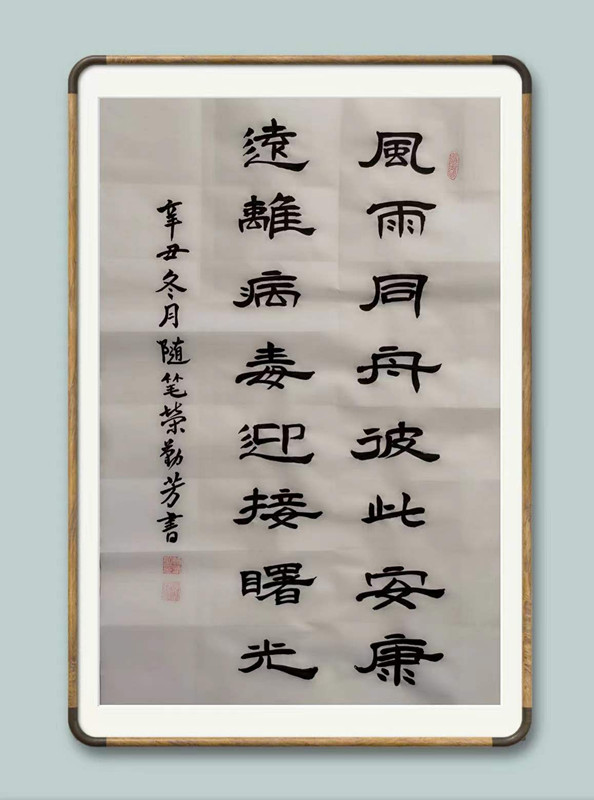 風雨同舟彼此安康
遠離病毒迎接曙光
辛丑冬月随笔荣勤芳書